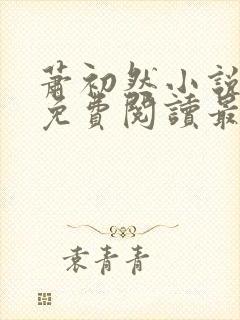 蕭初然小說
免費閱讀最
袁青青